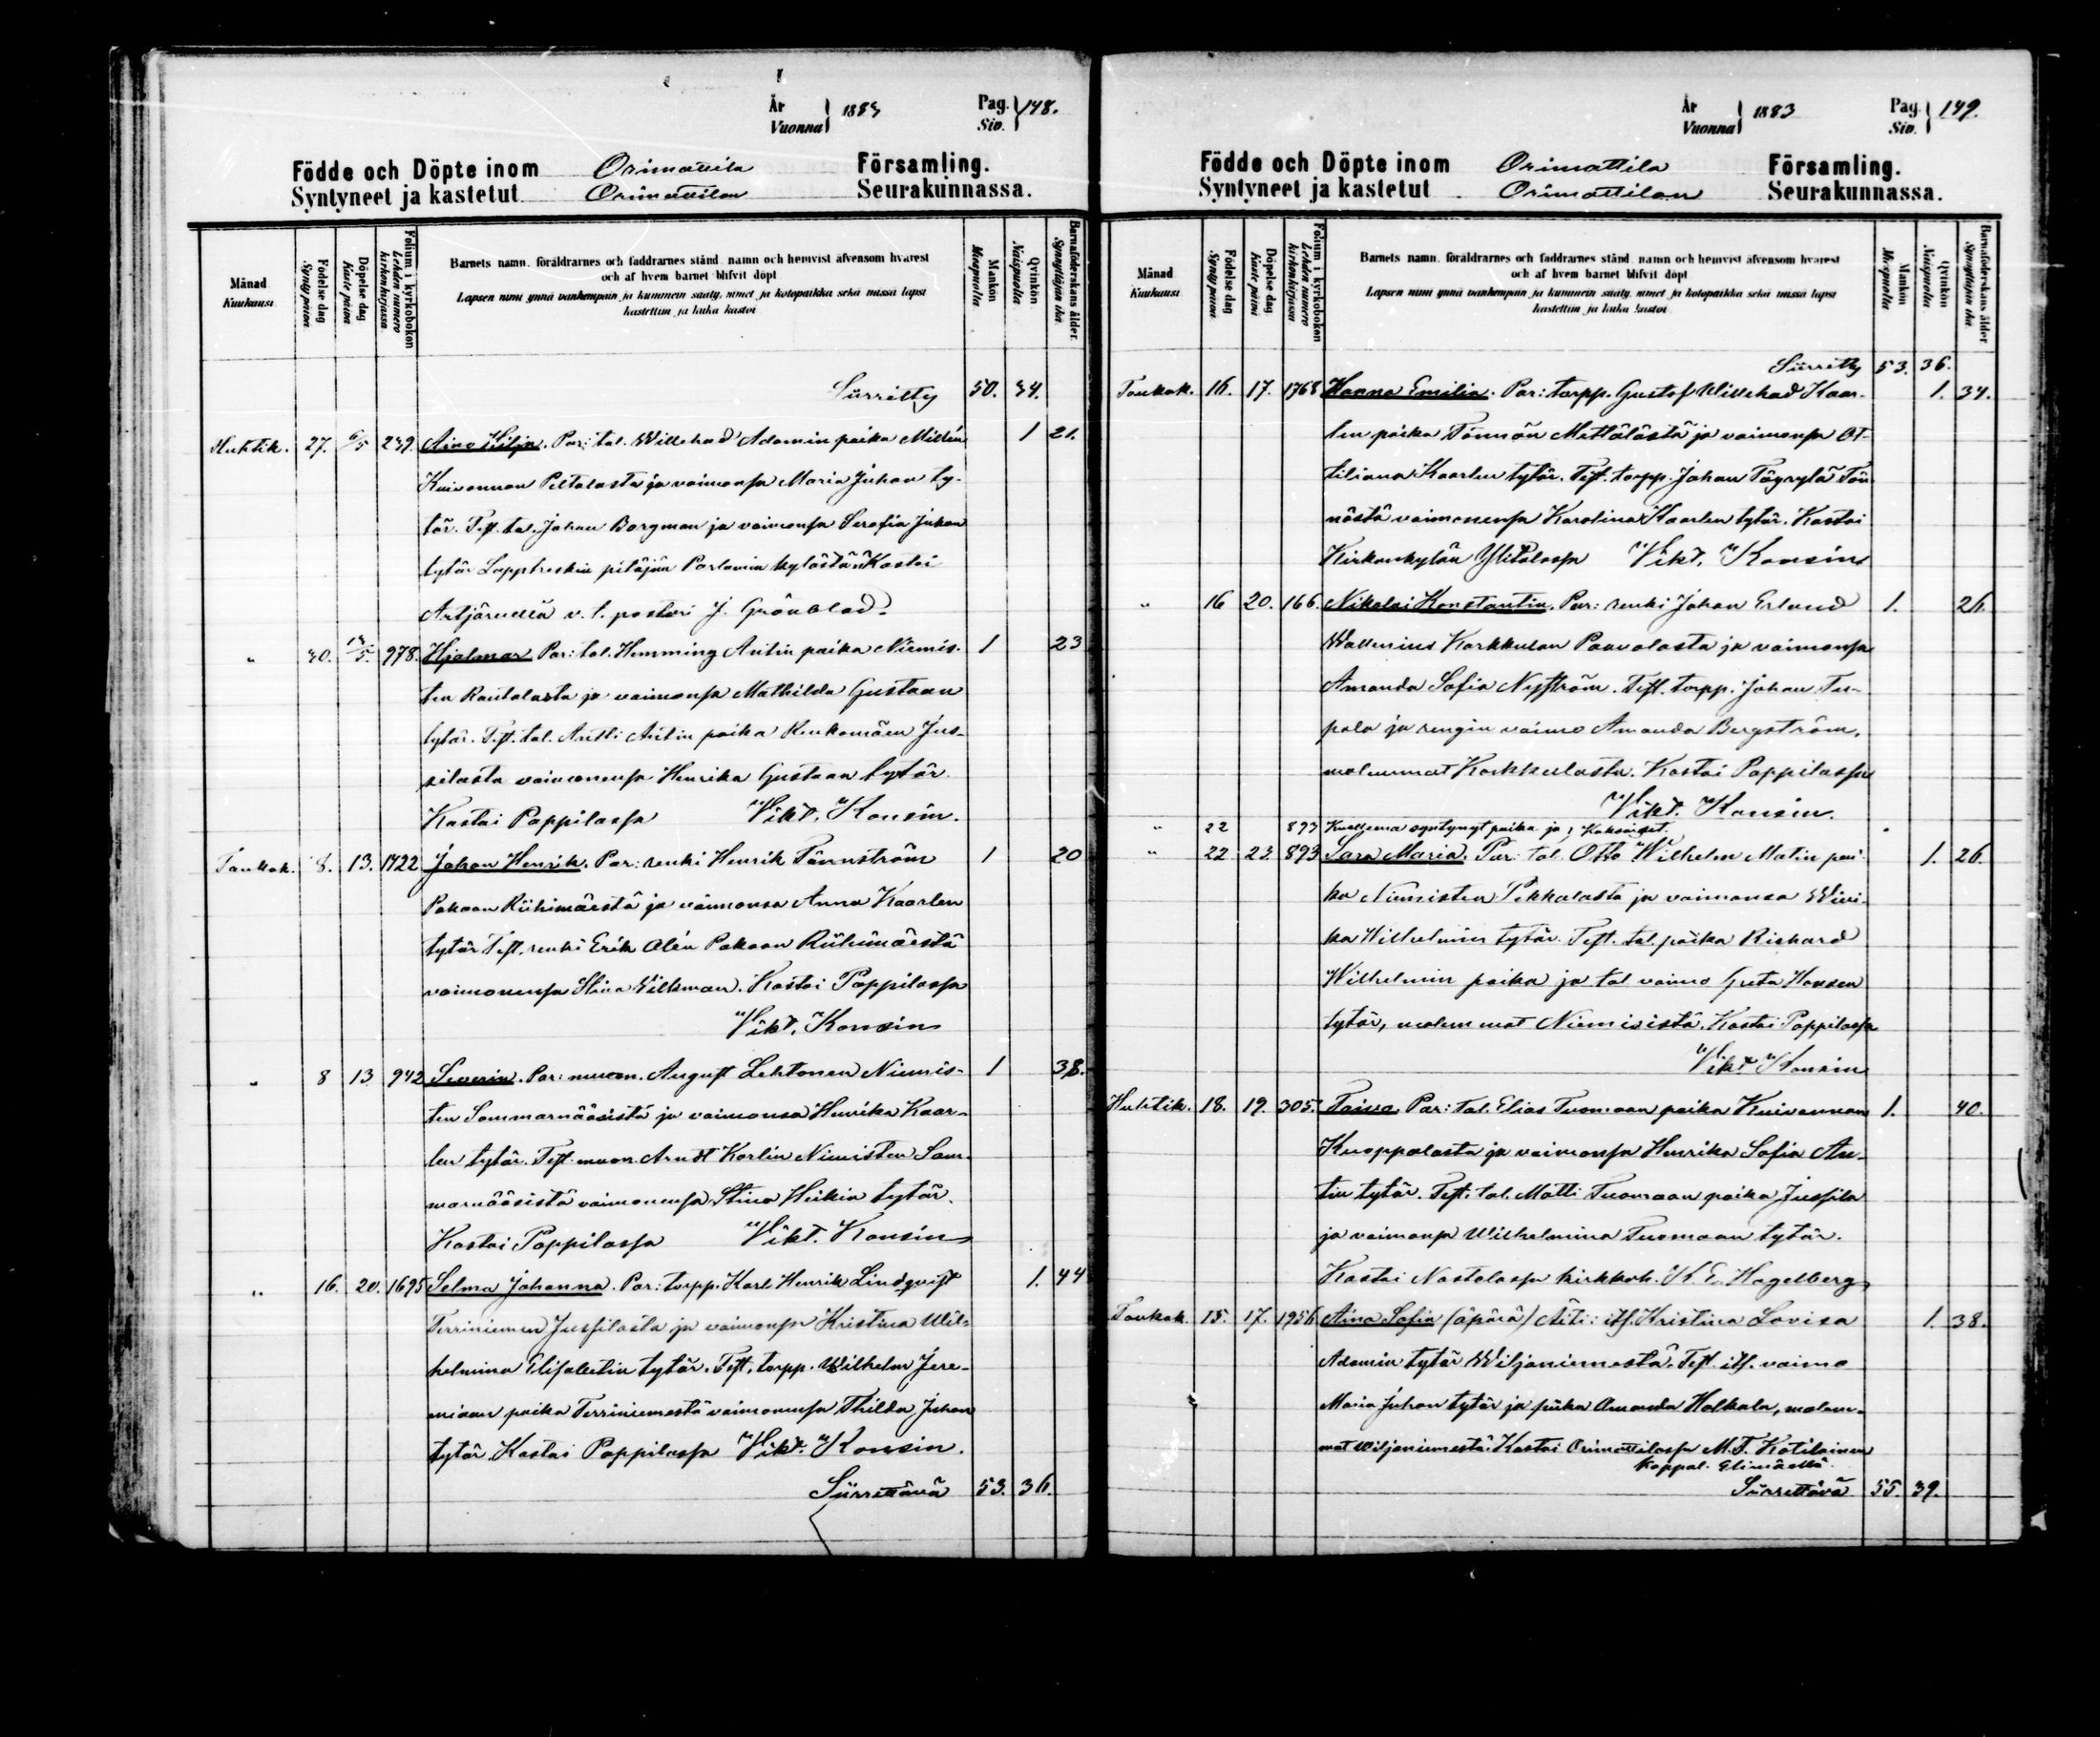 År Vuonna } 1883 Pag. Siv. } 148.
Födde och Döpte inom Orimattila Församling.
Syntyneet ja kastetut Orimattilan Seurakunnassa.
Månad Kuukausi
Födelse dag Synty päivä
Döpelse dag Kaste päivä
Folium i kyrkoboken Lehden numero kirkonkirjassa
Barnets namn, föräldrarnes och faddrarnes stånd, namn och hemvist äfvensom hvarest
och af hvem barnet blifvit döpt
Lapsen nimi ynnä vanhempain ja kummein sääty, nimet ja kotopaikka sekä missä lapsi
kastettiin ja kuka kastoi
Mankön Miespuolta
Qvinkön Naispuolia
Barnaföderskans ålder. Synnyttäjän ikä.
Siirretty 50. 34.
Huhtik. 27. 6/5 239. Aino Hilja. Par: tal. Willehad Adamin poika Millén 1 21.
Kuivannon Peltolasta ja vaimonsa Maria Juhan ty-
tär. Test. tal. Johan Borgman ja vaimonsa Serafia Juhan
tytär Lapptreskin pitäjän Porlamin kylästä. Kastoi
Artjärvellä v. t. pastori J. Grönblad.
" 30. 13/5. 978. Hjalmar Par: tal. Hemming Antin poika Niemis- 1 23
ten Rautalasta ja vaimonsa Mathilda Gustaan
tytär. Test. tal. Antti Antin poika Keukomäen Jus-
silasta vaimonensa Henrika Gustaan tytär.
Kastoi Pappilassa Vikt. Konsin.
Toukok. 8. 13. 1422 Johan Henrik. Par: renki Henrik Törnström 1 20
Pakaan Riihimäestä ja vaimonsa Anna Kaarlen
tytär Test. renki Erik Olén Pakaan Riihimäestä
vaimonensa Stina Wilkman. Kastoi Pappilassa
Vikt. Konsin
" 8 13 942 Severin. Par: muon. August Lehtonen Niemis- 1 38.
ten Sammarnääsistä ja vaimonsa Henrika Kaar-
len tytär. Test. muon. Arndt Korlin Niemisten Sam-
marnääsistä vaimonensa Stina Heikin tytär.
Kastoi Pappilassa Vikt. Konsin
" 16. 20. 1695 Selma Johanna. Par: torpp. Karl Henrik Lindqvist 1. 44
Terriniemen Jussilasta ja vaimonsa Kristina Wil-
helmina Elisabetin tytär. Test. torpp. Wilhelm Jere-
miaan poika Terriniemestä vaimonensa Thilda Juhan
tytär. Kastoi Pappilassa Vikt. Konsin.
Siirrettävä 53. 36.
År Vuonna } 1883 Pag. Siv. } 149.
Födde och Döpte inom Orimattila Församling.
Syntyneet ja kastetut Orimattilan Seurakunnassa.
Månad Kuukausi
Födelse dag Synty päivä
Döpelse dag Kaste päivä
Folium i kyrkoboken Lehden numero kirkonkirjassa
Barnets namn, föräldrarnes och faddrarnes stånd, namn och hemvist äfvensom hvarest
och af hvem barnet blifvit döpt
Lapsen nimi ynnä vanhempain ja kummein sääty, nimet ja kotopaikka sekä missä lapsi
kastettiin ja kuka kastoi
Mankön Miespuolta
Qvinkön Naispuolia
Barnaföderskans ålder Synnyttäjän ikä.
Siirretty 53. 36.
Toukok. 16. 17. 1768 Hanna Emilia. Par: torpp. Gustaf Willehad Kaar- 1. 34.
len poika Tönnön Mattilasta ja vaimonsa Ot-
tiliana Kaarlen tytär. Test. torpp. Johan Töyrylä Tön-
nöstä vaimonensa Karolina Kaarlen tytär. Kastoi
Kirkonkylän Ylitalossa Vikt. Konsin
" 16 20. 166. Nikolai Konstantin. Par: renki Johan Erland 1. 26.
Wallenius Karkkulan Paavolasta ja vaimonsa
Amanda Sofia Nyström. Test. torpp. Johan Tu-
pala ja rengin vaimo Amanda Bergström,
molemmat Karkkulasta. Kastoi Pappilassa
Vikt. Konsin.
" 22 893 Kuolleena syntynyt poika ja } Kaksoiset.
" 22 23. 893 Sara Maria. Par: tal. Otto Wilhelm Matin poi- 1. 26.
ka Niemisten Pekkalasta ja vaimonsa Wivi-
ka Wilhelmin tytär. Test. tal. poika Rishard
Wilhelmin poika ja tal. vaimo Greta Hansen
tytär, molemmat Niemisistä. Kastoi Pappilassa
Vikt. Konsin
Huhtik. 18. 19. 305. Toivo. Par: tal. Elias Tuomaan poika Kuivannon 1. 40.
Knoppalasta ja vaimonsa Henrika Sofia An-
tin tytär. Test. tal. Matti Tuomaan poika Jussila
ja vaimonsa Wilhelmina Tuomaan tytär.
Kastoi Nastolassa kirkkoh. K. E. Hagelberg
Toukok. 15. 17. 1956 Aina Sofia (äpärä) Äiti: its. Kristina Lovisa 1. 38.
Adamin tytär Wiljaniemestä. Test. its. vaimo
Maria Juhan tytär ja piika Amanda Halkala, molem-
mat Wiljaniemestä. Kastoi Orimattilassa M. T. Kotilainen
kappal. Elimäellä
Siirrettävä 55. 39.